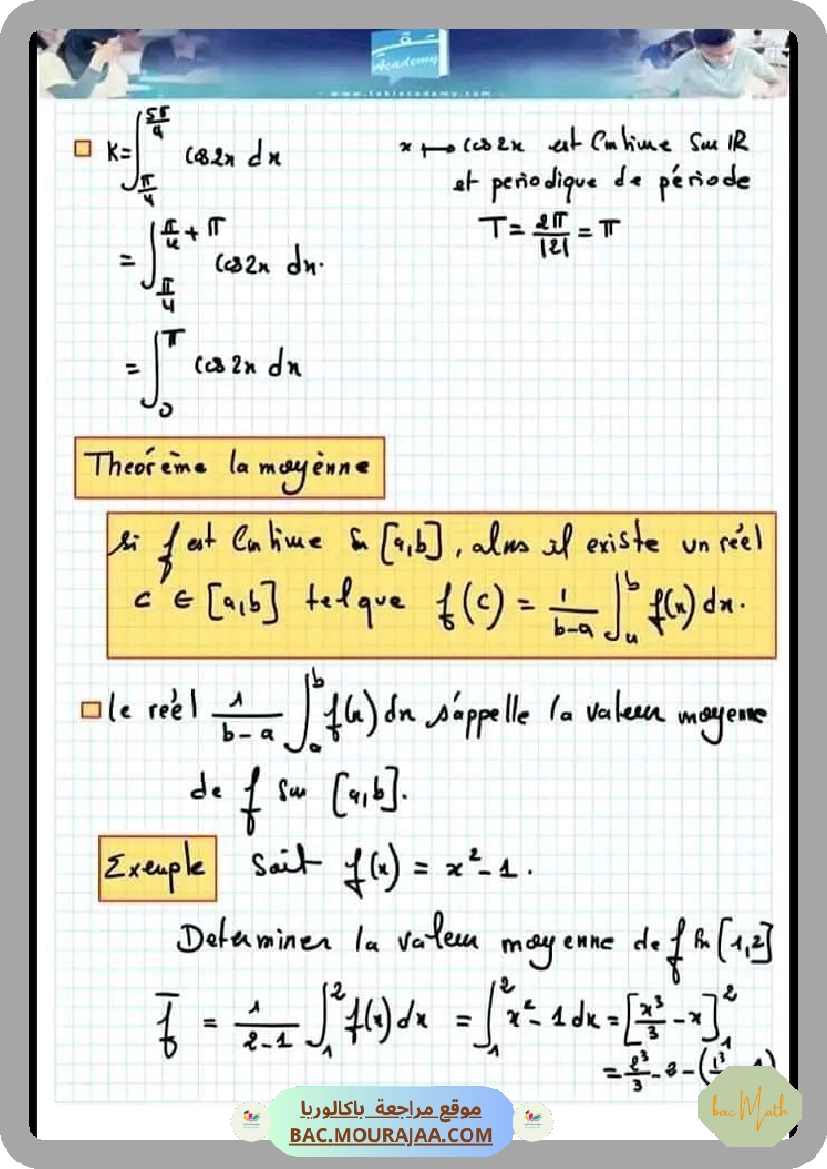 Academy
www.takiacademy.com
K = ∫_{π/4}^{5π/4} cos2x dx
x ↦ cos2x est Continue sur IR
et periodique de période
T = 2π/|2| = π
= ∫_{π/4}^{π/4 + π} cos2x dx.
= ∫_0^π cos2x dx
Theorème la moyenne
si f est Continue sur [a,b], alors il existe un réel
c ∈ [a,b] tel que f(c) = 1/(b-a) ∫_a^b f(x) dx.
le réel 1/(b-a) ∫_a^b f(x) dx s'appelle la valeur moyenne
de f sur [a,b].
Exemple Soit f(x) = x² - 1.
Determiner la valeur moyenne de f sur [1,2]
f̅ = 1/(2-1) ∫_1^2 f(x) dx = ∫_1^2 x² - 1 dx = [x³/3 - x]_1^2
= 2³/3 - 2 - (1³
bac Math
موقع مراجعة باكالوريا
BAC.MOURAJAA.COM